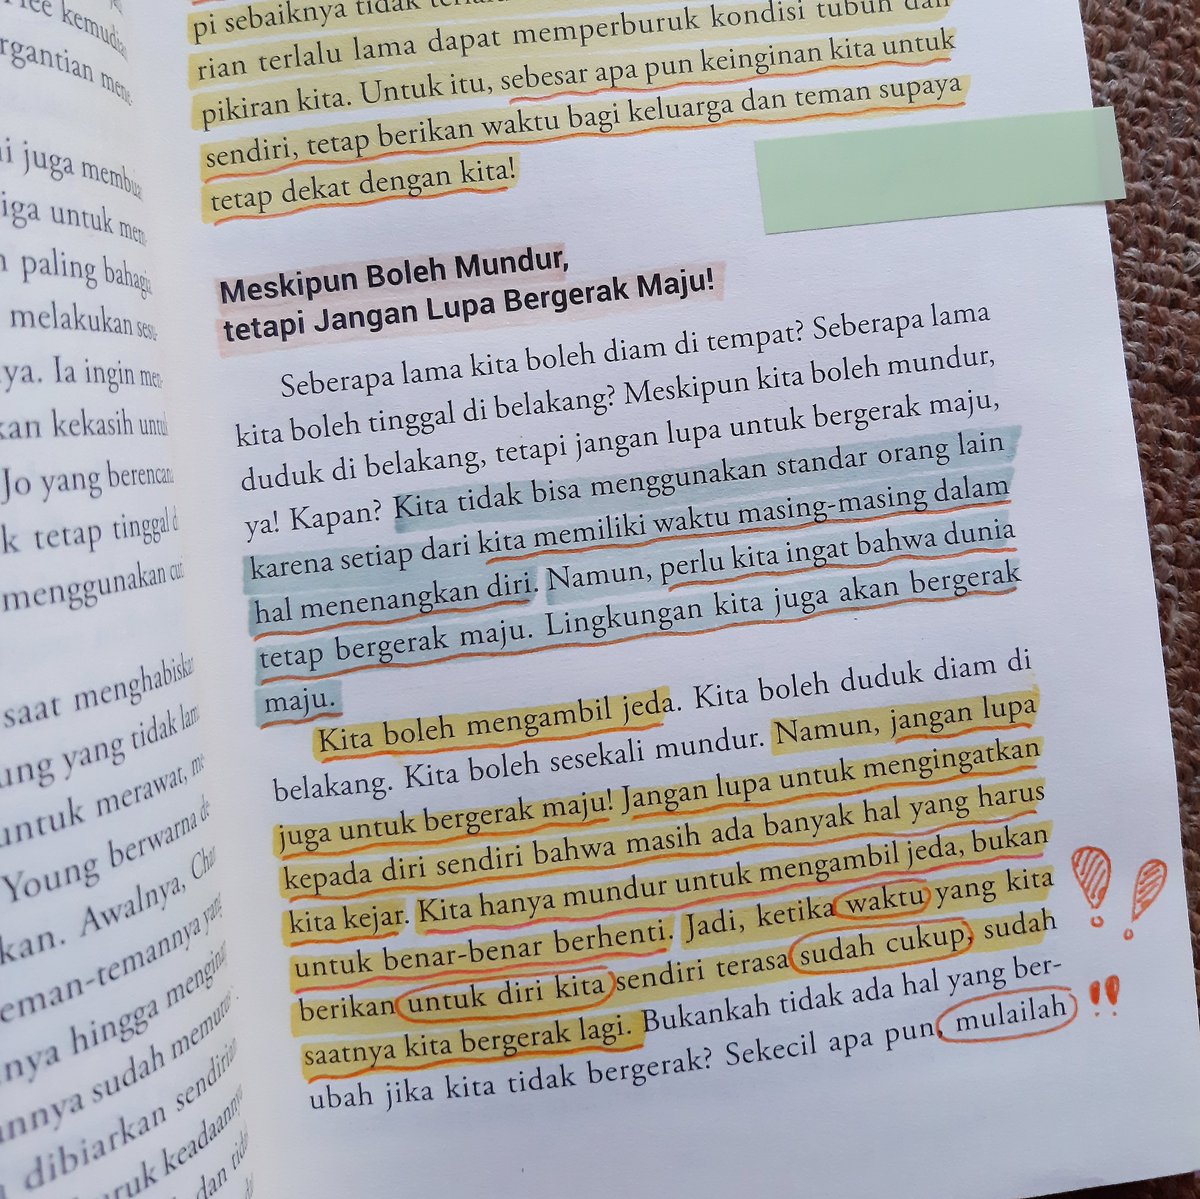 juga membua
iga untuk mem-
paling bahagia
melakukan sesu-
ya. Ia ingin men-
kan kekasih untuk
Jo yang berencana
k tetap tinggal d
menggunakan cu
saat menghabiskan
ung yang tidak lama
untuk merawat, me
Young berwarna de
kan. Awalnya, Cha
eman-temannya yang
nya hingga mengin
annya sudah memuru
dibiarkan sendirian
uruk keadaannya
dan tid
pi sebaiknya tidak
rian terlalu lama dapat memperburuk kondisi tubuh dan
pikiran kita. Untuk itu, sebesar apa pun keinginan kita untuk
sendiri, tetap berikan waktu bagi keluarga dan teman supaya
tetap dekat dengan kita!
Meskipun Boleh Mundur,
tetapi Jangan Lupa Bergerak Maju!
Seberapa lama kita boleh diam di tempat? Seberapa lama
kita boleh tinggal di belakang? Meskipun kita boleh mundur,
duduk di belakang, tetapi jangan lupa untuk bergerak maju,
ya! Kapan? Kita tidak bisa menggunakan standar orang lain
karena setiap dari kita memiliki waktu masing-masing dalam
hal menenangkan diri. Namun, perlu kita ingat bahwa dunia
tetap bergerak maju. Lingkungan kita juga akan bergerak
maju.
Kita boleh mengambil jeda. Kita boleh duduk diam di
belakang. Kita boleh sesekali mundur. Namun, jangan lupa
juga untuk bergerak maju! Jangan lupa untuk mengingatkan
kepada diri sendiri bahwa masih ada banyak hal yang harus
kita kejar. Kita hanya mundur untuk mengambil jeda, bukan
untuk benar-benar berhenti. Jadi, ketika waktu yang kita
berikan untuk diri kita sendiri terasa sudah cukup, sudah
saatnya kita bergerak lagi. Bukankah tidak ada hal yang ber-
ubah jika kita tidak bergerak? Sekecil apa pun, mulailah
!!
!!